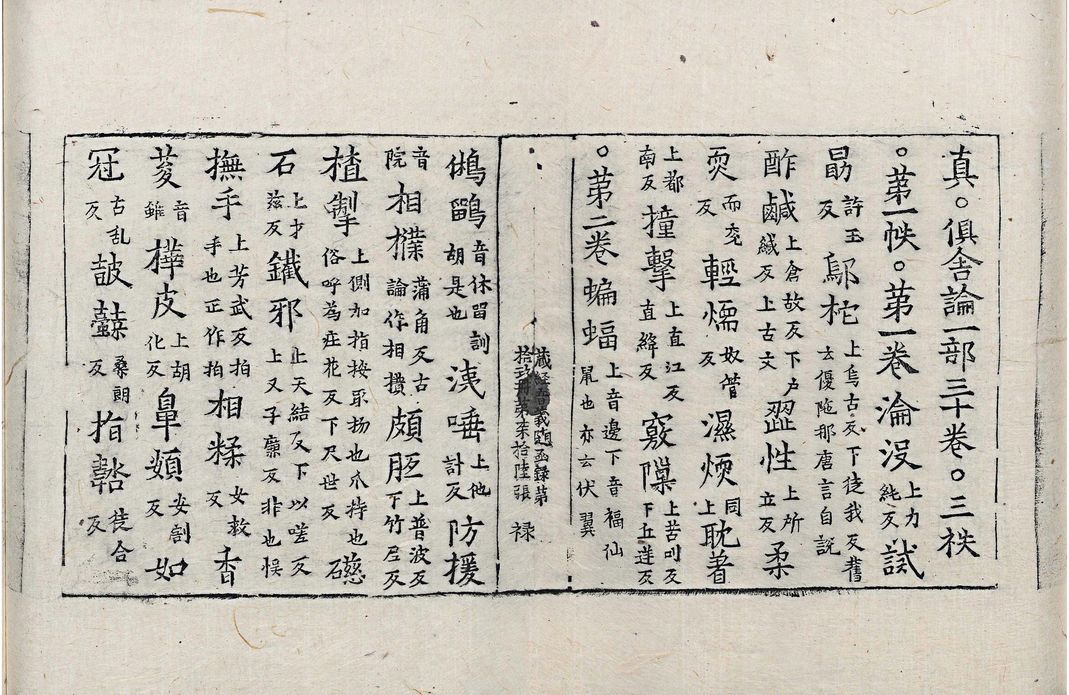 真。俱舍論一部三十卷。三袟
。第一帙。第一卷 淪没 上力純反 試
勗 許玉反 鄔柁 上烏古反下徒我反舊云優陁那唐言自説
酢鹹 上倉故反下户緘反上古文 澀性 上所立反 柔
耎 而兖反 輕㷇 奴管反 濕煗 同上 耽著
上都南反 撞擊 上直江反直絳反 竅隟 上苦叫反下丘逆反
。第二卷 蝙蝠 上音邊下音福仙鼠也亦云伏翼
藏經音義随函録第
拾玖冊第柒拾陸張 禄
鵂鶹 音休留訓胡是也 洟唾 上他計反 防援
音院 相撲 蒲角反古論作相㩧 頗胝 上普波反下竹尼反
樝掣 上側加反指按取物也爪持也俗呼為庄花反下尺世反 礠
石 上才兹反 鐵邪 上天結反下以嗟反上又子廉反非也悮
撫手 上芳武反拍手也正作拍 相糅 女救反 香
菱 音錐 樺皮 上胡化反 皐頞 安割反 如
冠 古乱反 皷鼞 桑朗反 指䶀 徒合反